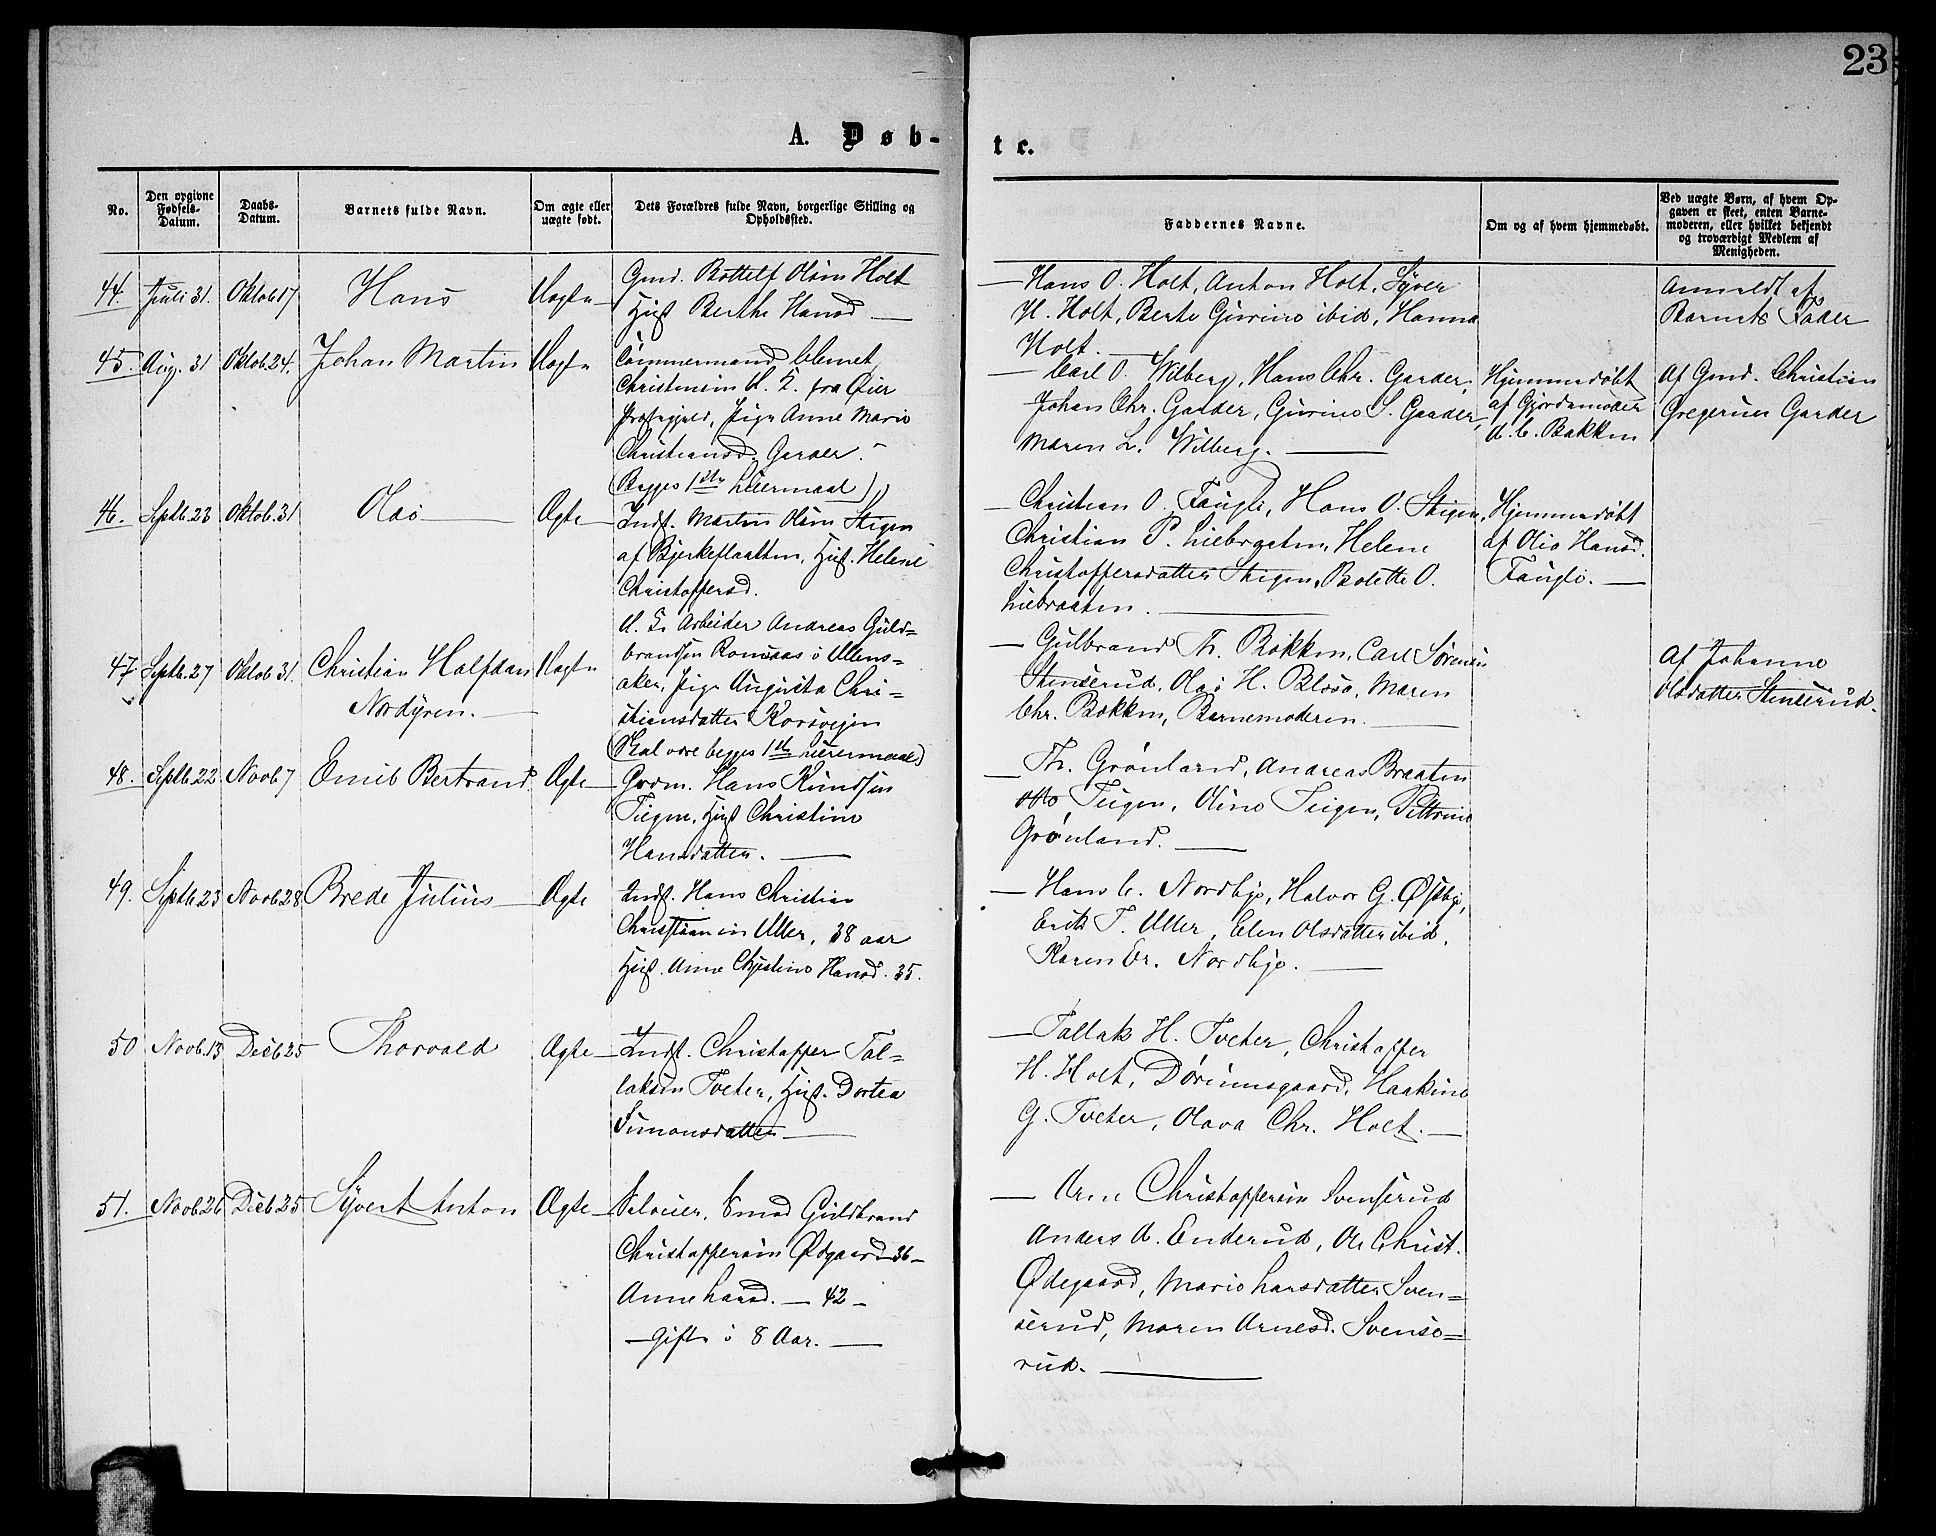 23
A. Døb-
te.
No.
Den opgivne Fødsels-Datum.
Daabs-Datum.
Barnets fulde Navn.
Om ægte eller uægte født.
Dets Forældres fulde Navn, borgerlige Stilling og Opholdssted.
Faddernes Navne.
Om og af hvem hjemmedøbt.
Ved uægte Børn, af hvem Opgaven er skeet, enten Barnemoderen, eller hvilket bekjendt og troværdigt Medlem af Menigheden.
44. Juli 31. Oktob 17 Hans Uægte
Gmd. Bottelf Olsen Holt
Hust Berthe Hansd
Hans O. Holt, Anton Holt, Syver
H. Holt, Berte Gurine ibid, Hanna
Holt.
Anmeldt af
Barnets Fader
45. Aug. 31 Oktob. 24. Johan Martin Uægte
Tømmermand Clemet
Christensen U. K. fra Øier
Præstegjeld, Pige Anne Marie
Christiansd. Garder.
(Begges 1ste Leiermaal)
Carl O. Wilberg, Hans Chr. Garder,
Johan Chr. Garder, Gurine S. Garder,
Maren L. Wilberg.
Hjemmedøbt
af Gjordemoder
A. C. Bakken
Af Gmd. Christian
Gregersen Garder
46. Septb. 23 Oktob. 31 Olai Ægte
Indst. Martin Olsen Stigen
af Bjerkeflaatten, Hust. Helene
Christoffersd.
Christian O. Faugli, Hans O. Stigen,
Christian P. Liebraaten, Helene
Christoffersdatter Stigen, Bolette O.
Liebraaten.
Hjemmedøbt
af Olia Hansd.
Faugli.
47 Septb. 27 Oktob 31. Christian Halfdan Uægte
Nordgren.
U. K. Arbeider Andreas Guld-
brandsen Romsaas i Ullens-
aker, Pige Augusta Chri-
stiansdatter Korsvejen
(Skal være begges 1ste Leiermaal)
Gulbrand Th. Bakken, Carl Sørensen
Stenserud, Olai H. Blesa, Maren
Chr. Bakken, Barnemoderen.
Af Johanne
Olsdatter Stenserud.
48. Septb. 22 Novb 7 Emil Bertrand Ægte
Grdm. Hans Knudsen
Tiegen, Hust Christine
Hansdatter.
Th. Grønland, Andreas Braaten
Otto Teigen, Oline Teigen, Petrine
Grønland.
49. Septb 23 Novb 28 Brede Julius Ægte
Indst. Hans Christian
Christiansen Uller, 38 aar
Hust. Anne Christine Hansd. 35.
Hans C. Nordbye, Halvor G. Østbye,
Erik T. Uller, Elen Olsdatter ibid,
Karen Er. Nordbye.
50 Novb. 13 Decb 25 Thorvald Ægte
Indst. Christoffer Tal-
laksen Tveter, Hust. Dortea
Simonsdatter
Tallak H. Tveter, Christoffer
H. Holt, Haakine
G. Tveter, Olava Chr. Holt.
51. Novb. 26 Decb 25 Syvert Anton Ægte
Selveier, Smed Guldbrand
Christoffersen Ødgaard 36
Anne Larsd. 42
gift i 8 Aar.
Arne Christoffersen Svenserud
Anders A. Enderud, Christ.
Ødegaard, Marie Larsdatter Sven-
serud, Maren Arnesd. Svense-
rud.